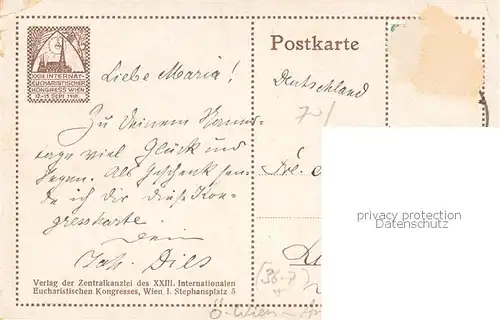 XXIII. INTERNAT.
EUCHARISTISCHER
KONGRESS WIEN
12.-15. SEPT. 1912.
Postkarte
Liebe Maria!
Deutschland
Zu Deinem Namens-
tage viel Glück und
Segen. Als Geschenk sen-
de ich dir diese Kon-
gresskarte.
Dein
Joh. Dils
Frl.
privacy protection
Datenschutz
Verlag der Zentralkanzlei des XXIII. Internationalen
Eucharistischen Kongresses, Wien I. Stephansplatz 5